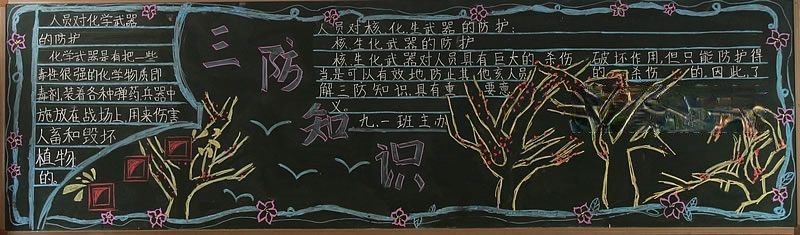 人员对化学武器
的防护
化学武器是有把一些
毒性很强的化学物质即
毒剂,装着各种弹药,兵器中
施放在战场上,用来伤害
人畜和毁坏
植物
的。
三防知识
人员对核、化、生武器的防护:
核生化武器的防护
核生化武器对人员具有巨大的杀伤 破坏作用,但只能防护得
当是可以有效地防止其他亥人员 的 杀伤 的,因此,了
解三防知识,具有重 要意
义。
九.一班主办